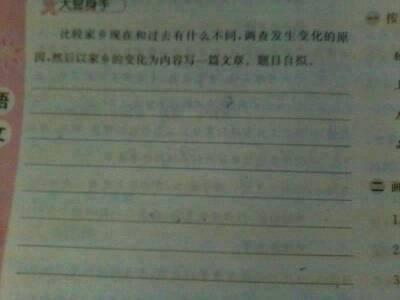 大显身手
比较家乡现在和过去有什么不同，调查发生变化的原
因，然后以家乡的变化为内容写一篇文章。题目自拟。
语
文
一 按
二 画
1.
2.
3.